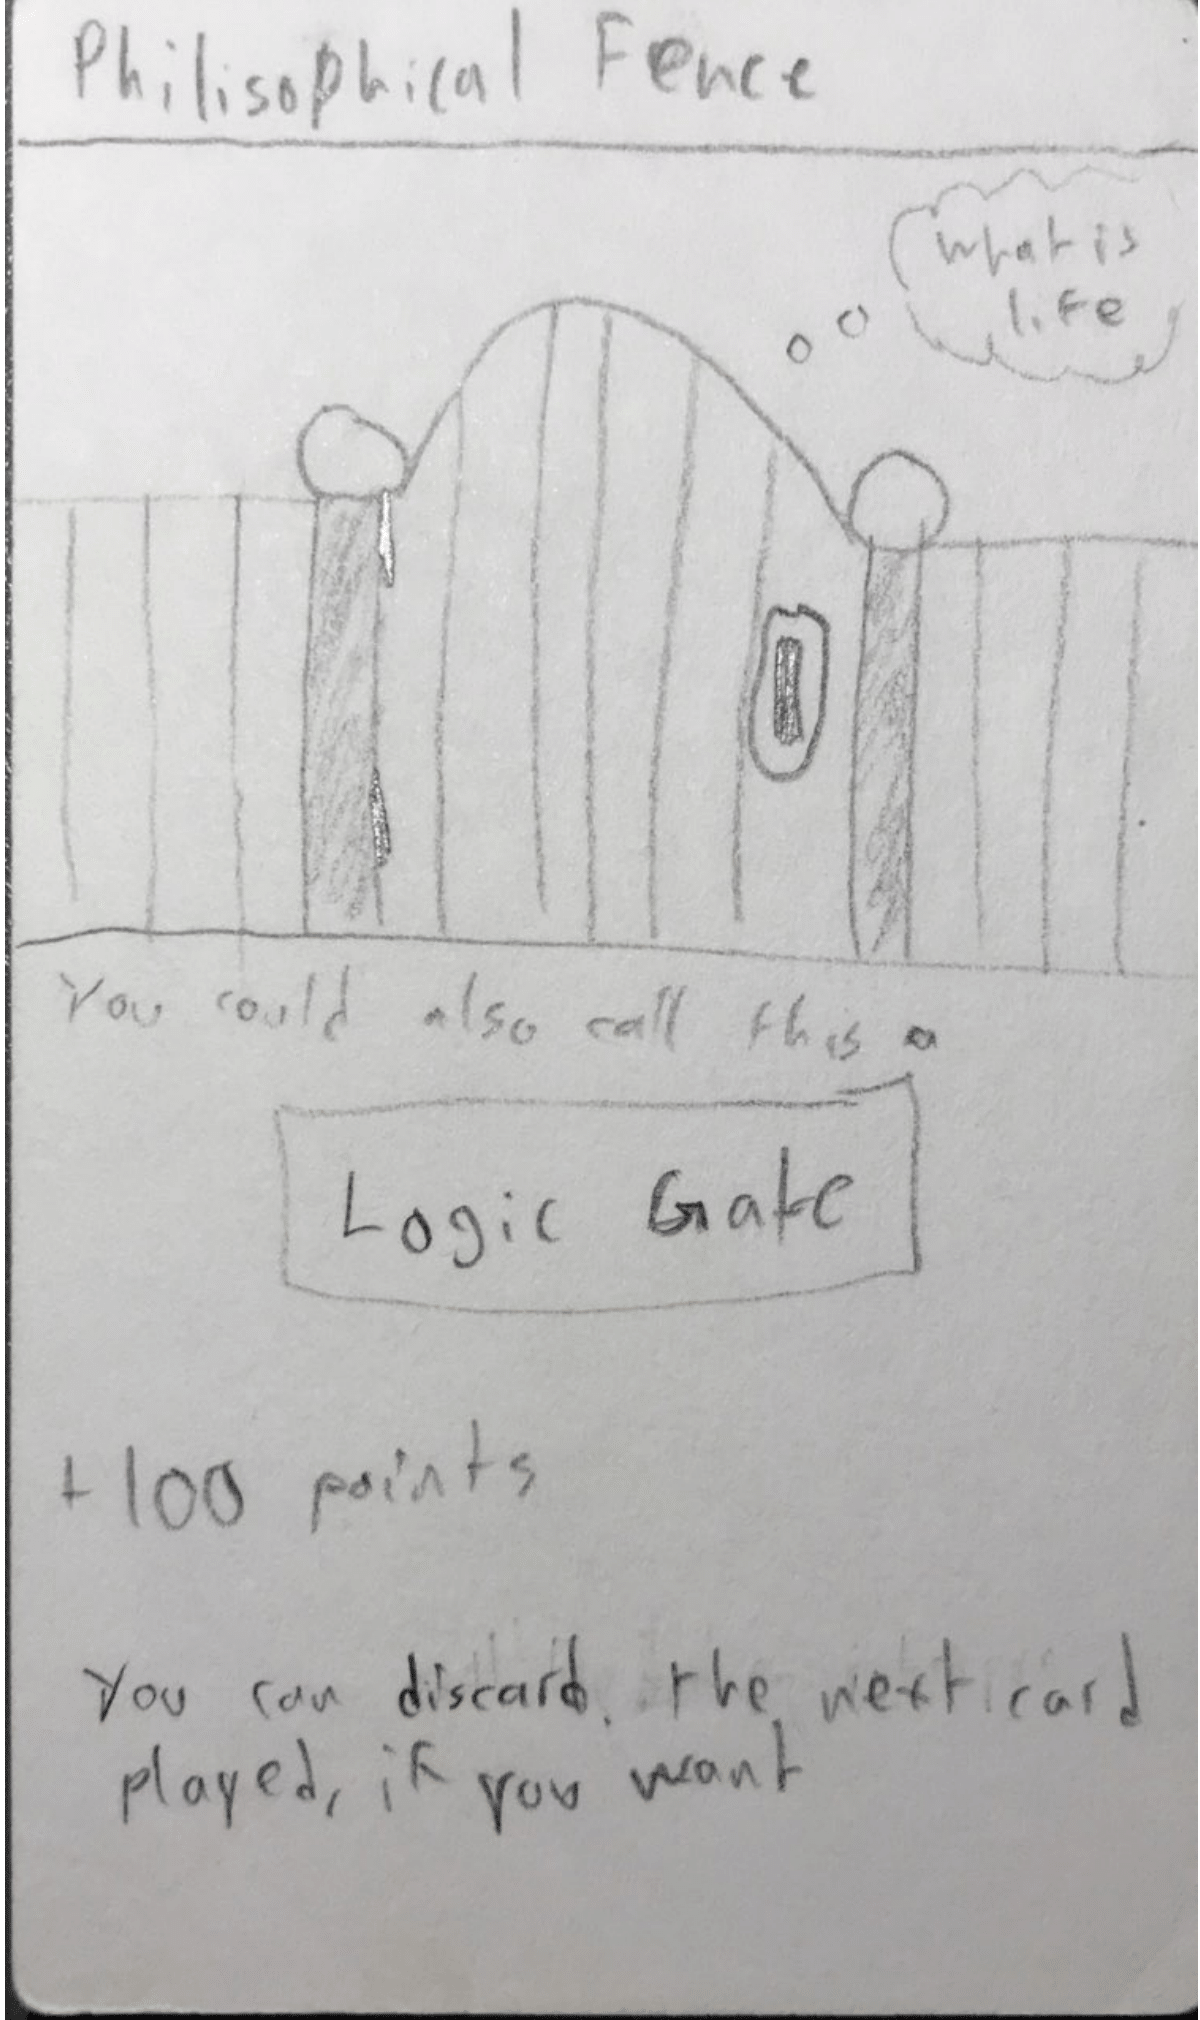 Philisophical Fence
what is
life
You could also call this a
Logic Gate
+100 points
You can discard. the next card
played, if you want